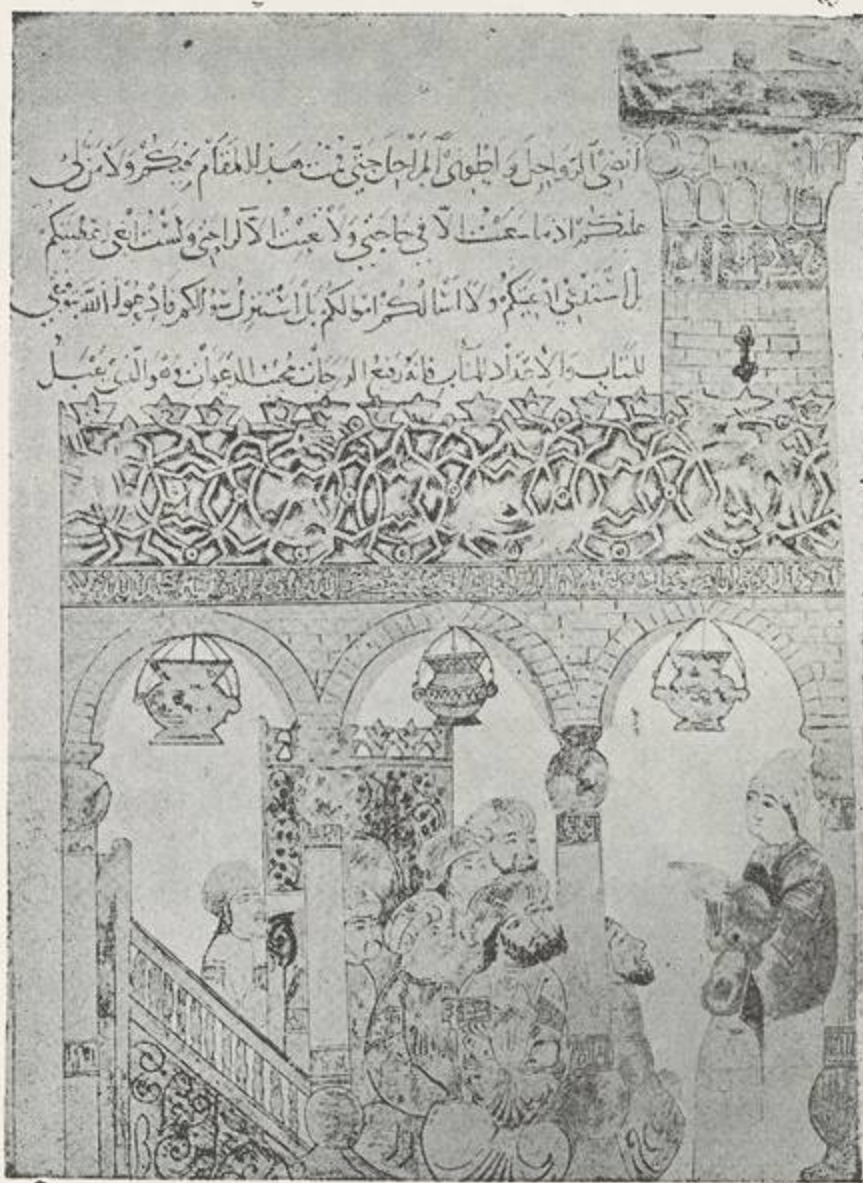 انضي الرواحل واطوي المراحل حتى قمت هذا المقام ولا من لي
عليكم اذ ما سعيت الا في حاجتي ولا تعبت الا لراحتي ولست ابغي اعطيتكم
بل استدعي ادعيتكم ولا اسالكم اموالكم بل استنزل سؤالكم فادعوا الله
للمتاب والاعداد للمآب فانه رفيع الدرجات مجيب الدعوات وهو الذي يقبل